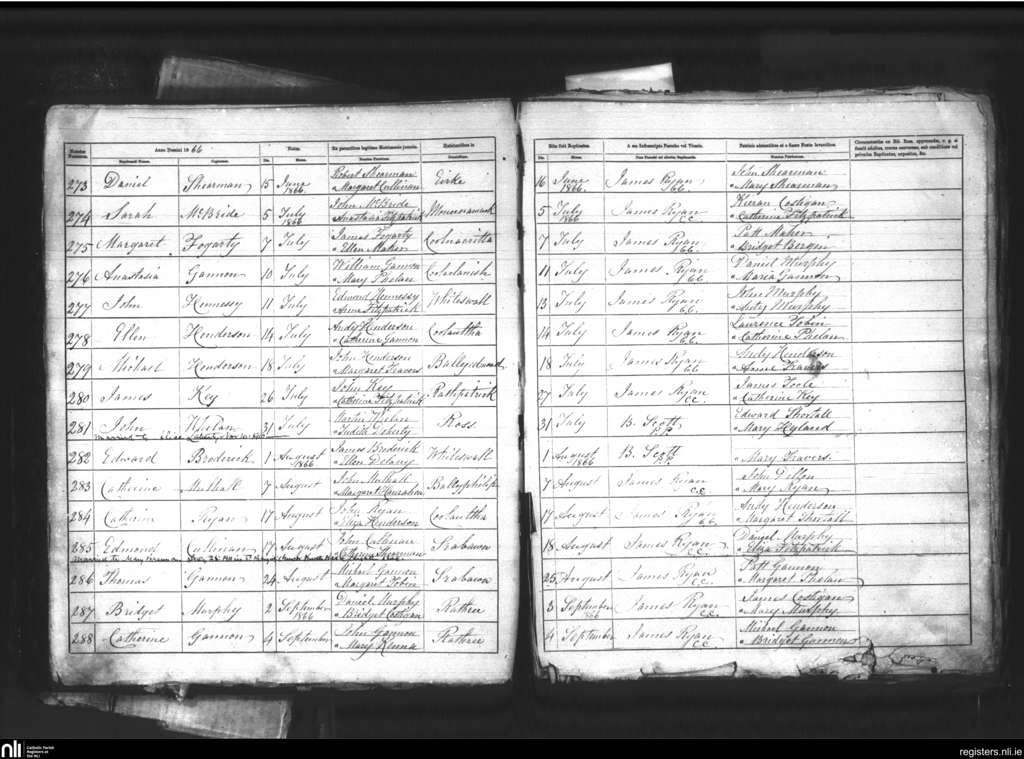 Anno Domini 1866
Natus.
Ex parentibus legitimo Matrimonio junctis.
Habitantibus in
Rite fuit Baptizatus.
A me Infrascripto Parocho vel Vicario.
Patrinis adstantibus et e Sacro Fonte levantibus.
Baptizati Nomen.
Cognomen.
Die.
Mense.
Nomina Parentum.
Domicilium.
Die.
Mense.
Nomina Patrinorum.
273 Daniel Shearman 15 June 1866 Robert Shearman Margaret Cullinan Eirke 16 June 1866. James Ryan CC. John Shearman Mary Shearman
274 Sarah McBride 5 July 1866 John McBride Anastasia Fitzpatrick 5 July 1866 James Ryan CC Kieran Costigan Catherine Fitzpatrick
275 Margaret Fogarty 7 July James Fogarty Ellen Maher Coolnacritta 7 July James Ryan CC. Patt Maher Bridget Bergin
276 Anastasia Gannon 10 July William Gannon Mary Phelan 11 July James Ryan CC. Daniel Murphy Maria Gannon
277 John Hennessy 11 July Edmund Hennessy Anne Fitzpatrick Whiteswall 13 July James Ryan CC. John Murphy Murphy
278 Ellen Henderson 14 July Andy Henderson Catherine Gannon Coolauttha 14 July James Ryan CC. Laurence Tobin Catherine
279 Michael Henderson 18 July John Henderson Margaret Travers Balleyedmond 18 July James Ryan CC Andy Henderson Anne Travers
280 James Key 26 July John Key Catherine Fitzpatrick Rathpatrick 27 July James Ryan CC. James Toole Catherine Key
281 John Whelan 31 July Martin Whelan Judith Doherty Ross 31 July B. Scott P.P. Edward Shortall Mary Hyland
married to
282 Edward Broderick 1 August 1866 James Broderick Ellen Delany Whiteswall 1 August 1866 B. Scott P.P. Mary Travers.
283 Catherine Mulhall 7 August John Mulhall Margaret Hanrahan Ballyphilip 7 August James Ryan C.C. John Dillon Mary Ryan
284 Catherine Ryan 17 August John Ryan Eliza Henderson Coolauttha 17 August James Ryan CC. Andy Henderson Margaret Shortall
285 Edmond Cullinan 17 August John Cullinan Catherine Shearman Srabawn 18 August James Ryan CC. Daniel Murphy Eliza Fitzpatrick
married to Mary
286 Thomas Gannon 24 August Michael Gannon Margaret Tobin Srabawn 25 August James Ryan CC. Patt Gannon Margaret Phelan
287 Bridget Murphy 2 September 1866 Daniel Murphy Bridget Costigan Rathree 3 September 1866 James Ryan C.C. James Costigan Mary Murphy
288 Catherine Gannon 4 September John Gannon Mary Kenna Rathree 4 September James Ryan CC. Michael Gannon Bridget Gannon
nli
Catholic Parish
Registers at
the NLI
registers.nli.ie